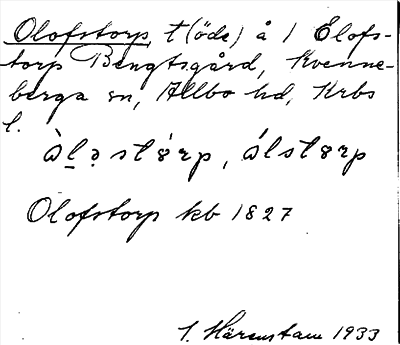 Olofstorp, t (öde) å 1 Elofs-
torp Bengtsgård, Kvenne-
berga sn, Allbo hd, Krbs
l.
àlǝstòrp, álstorp
Olofstorp kb 1827
J. Härenstam 1933